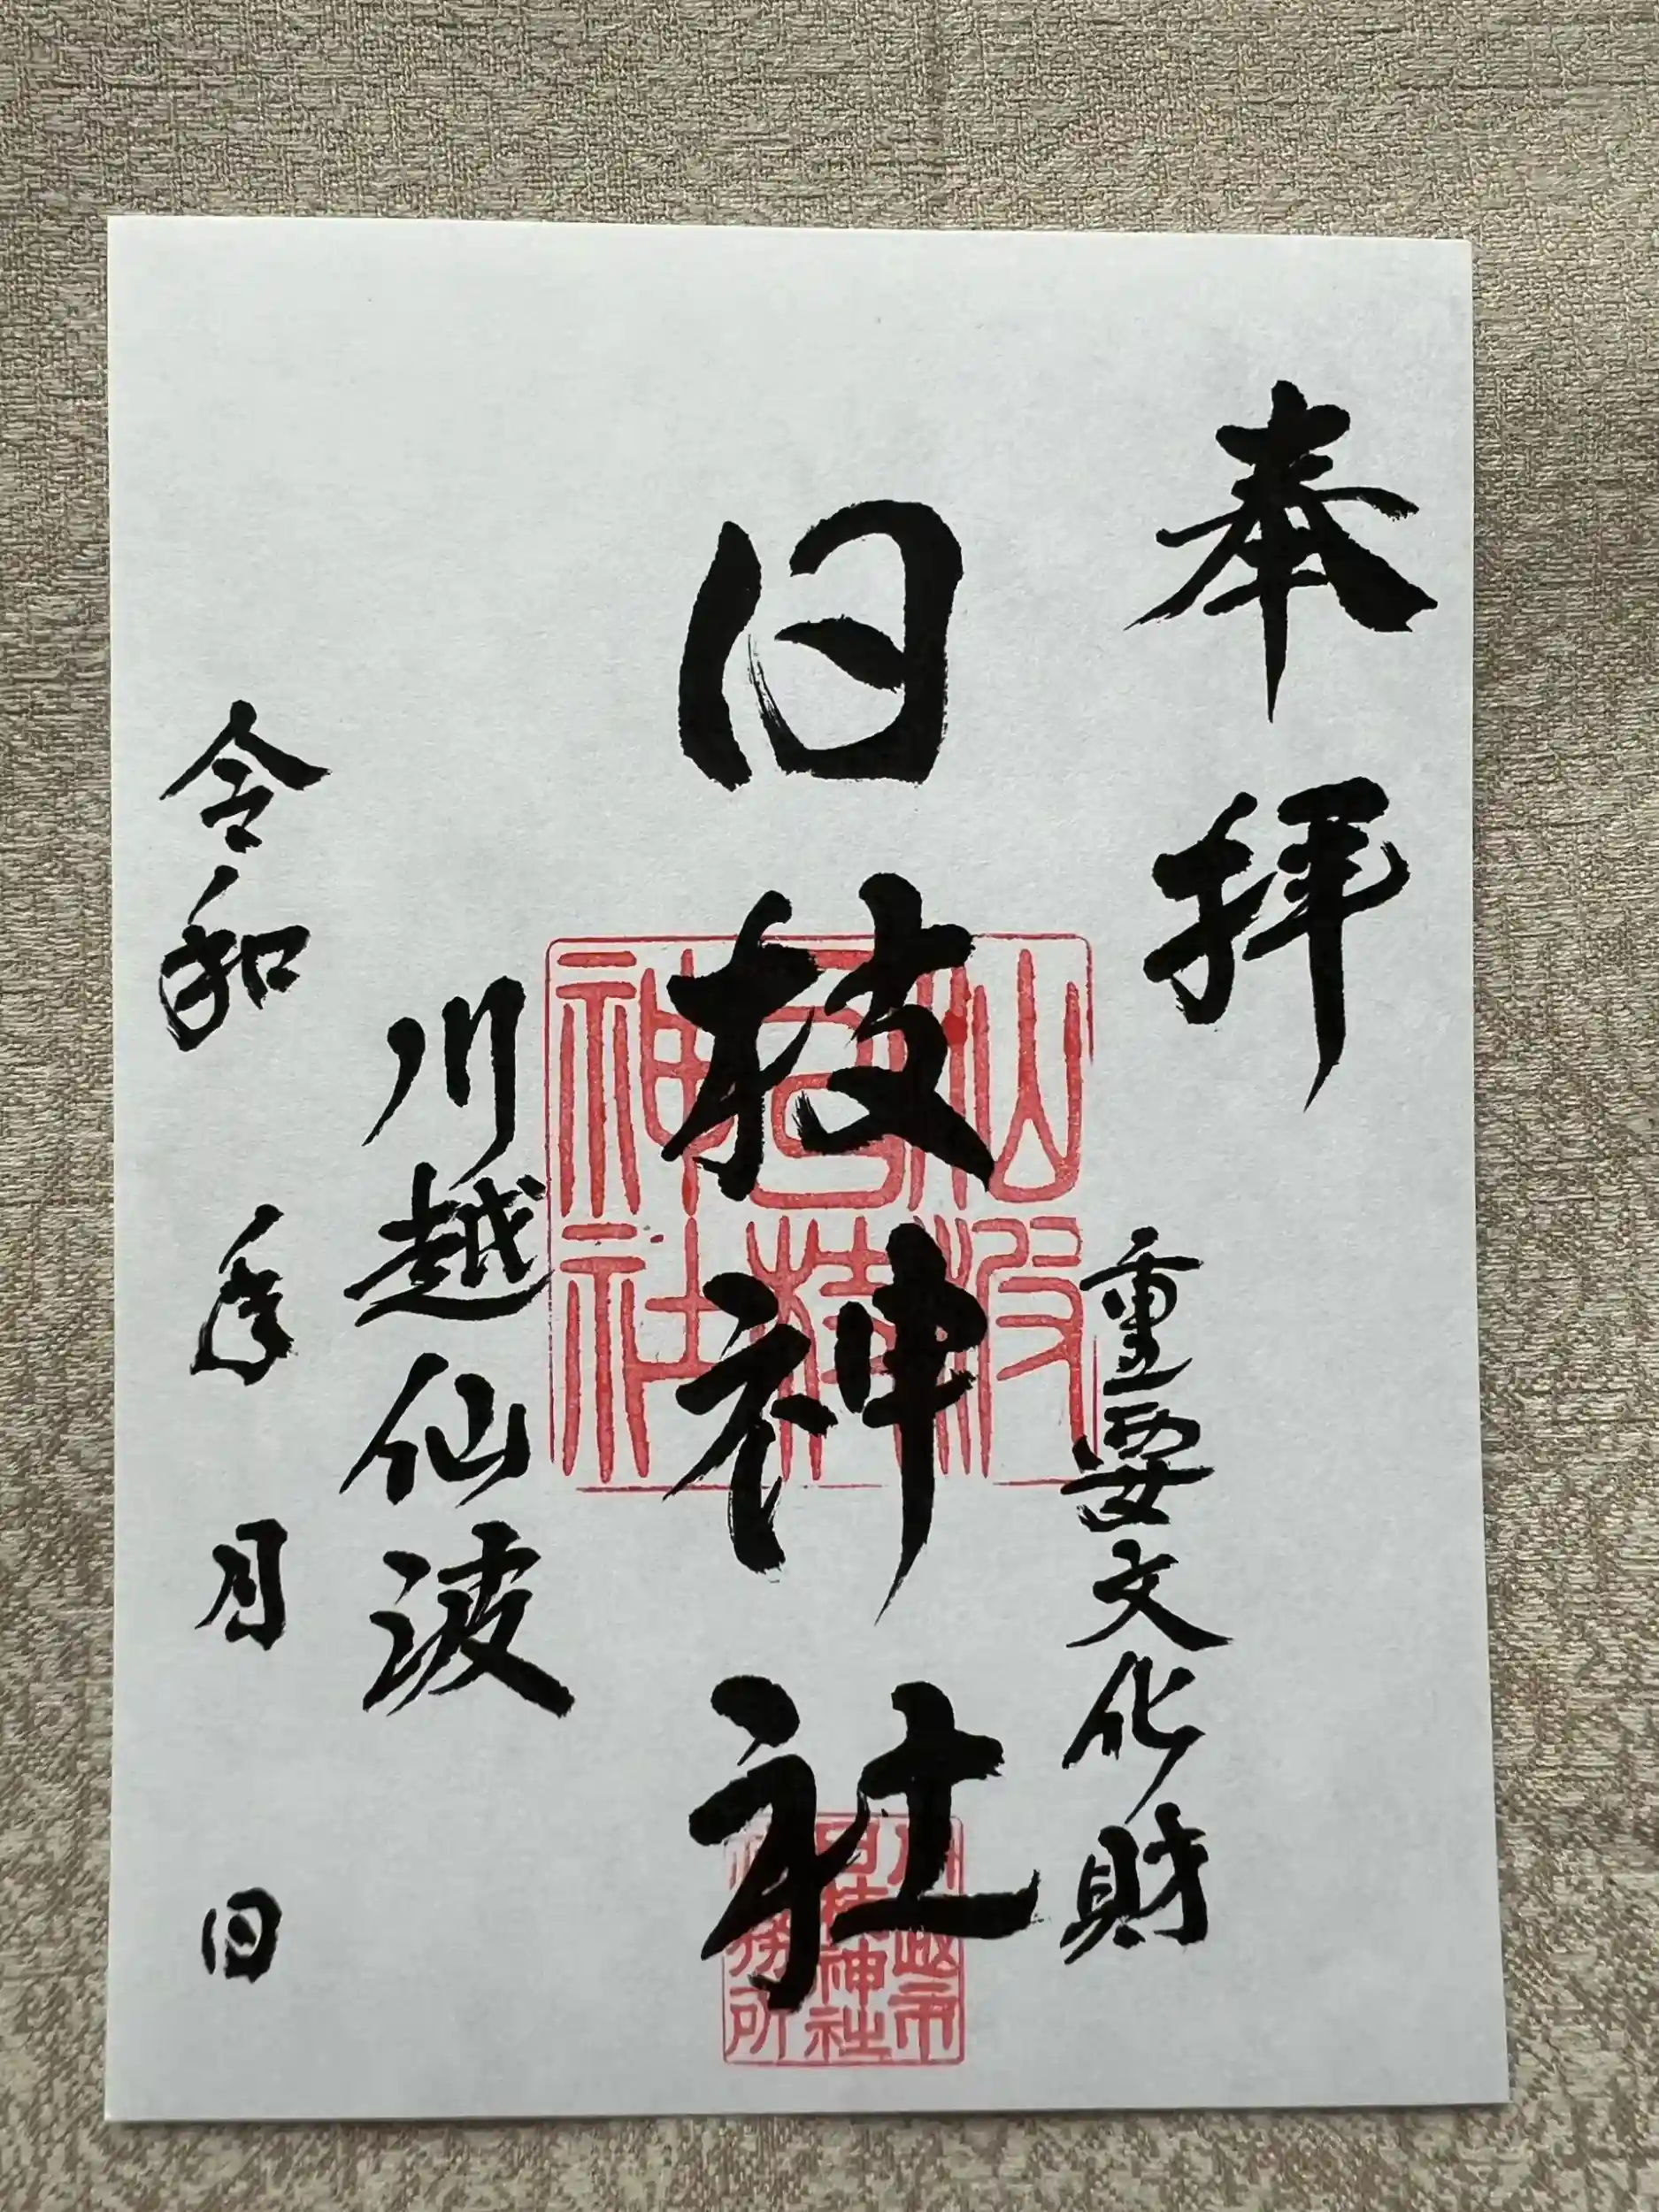 奉拝
重要文化財
日枝神社
川越仙波
令和 年 月 日
仙波
日枝
神社
川越市
日枝神社
社務所